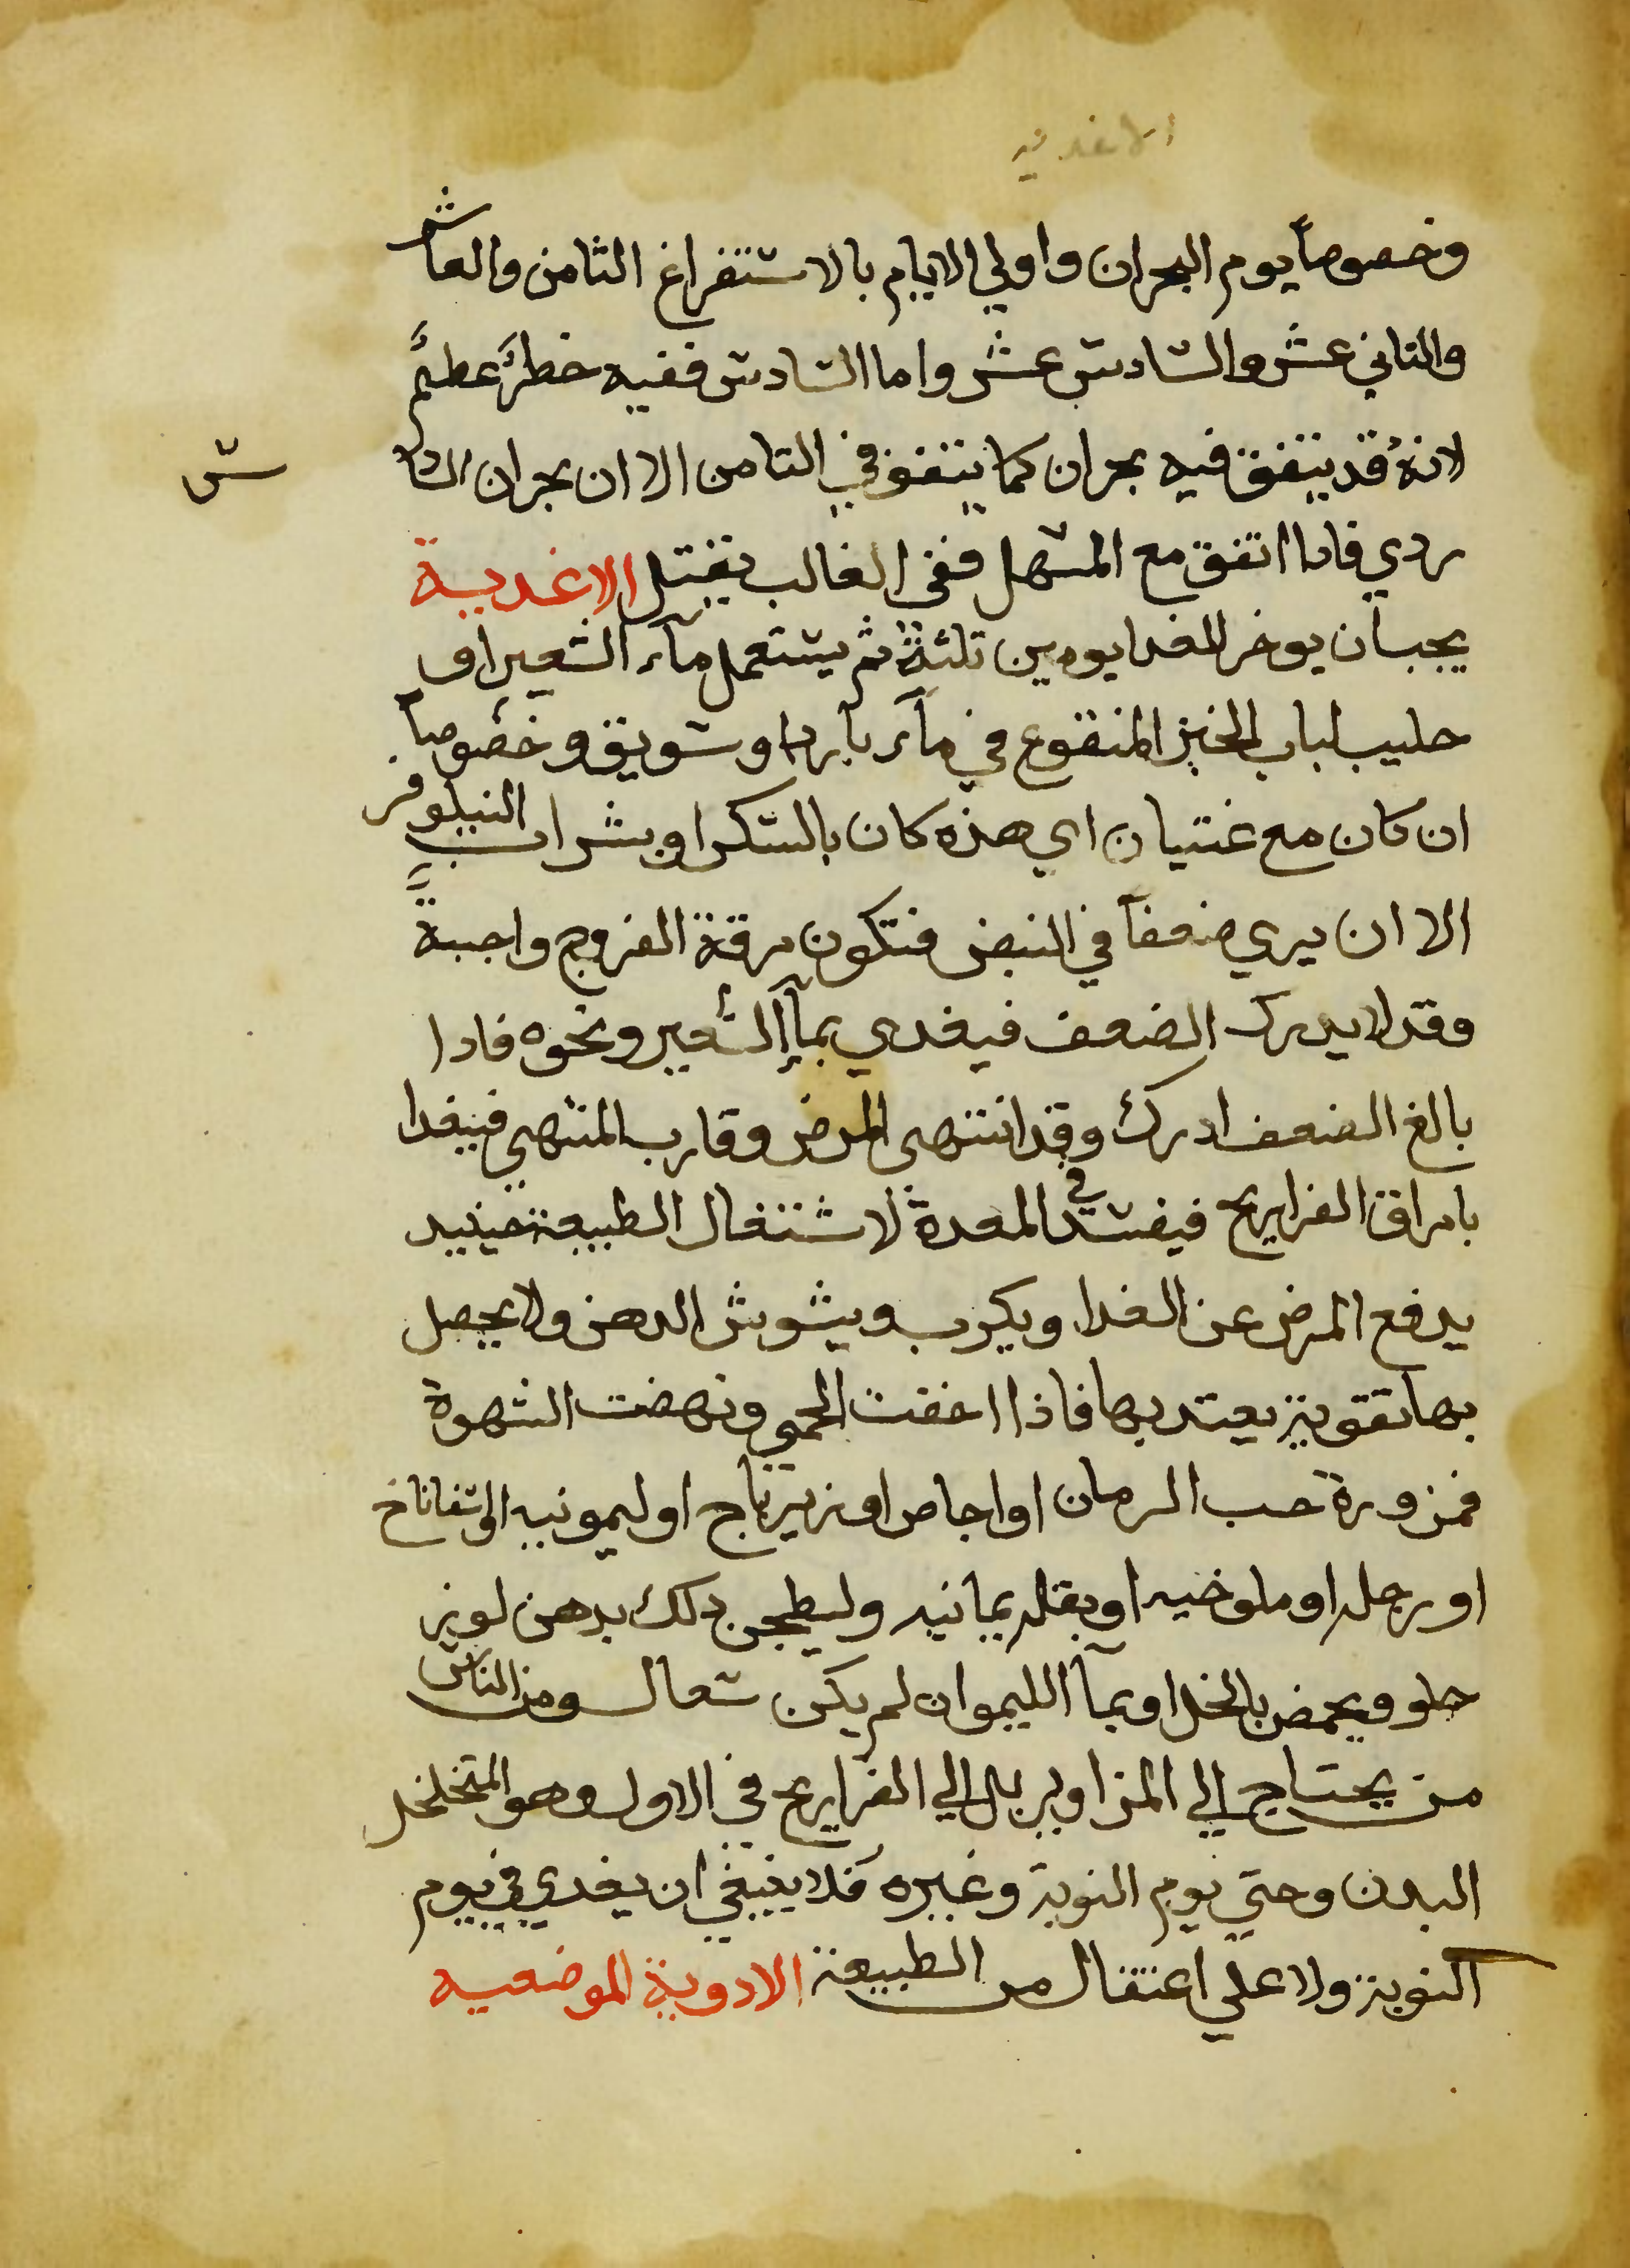 الاغديه
وخصوصاً يوم البحران واولي الايام بالاستفراغ الثامن والعاشر
والثاني عشر والسادس عشر واما السادس ففيه خطرٌ عظيمٌ
لانهُ قد يتفق فيه بحران كما يتفق في الثامن الا ان بحران الساد
س
ردي فادا اتفق مع المسهل ففي الغالب يقتل الاغدية
يجب ان يوخر الغدا يومين ثلثة ثم يستعمل مآء الشعير او
حليب لباب الخبز المنقوع في مآء بارد او سويق وخصوصاً
ان كان مع غتيان اي هذه كان بالسكر او بشراب النيلوفر
الا ان يري ضعفاً في النبض فتكون مرقة الفروج واجبةً
وقد لا يدرك الضعف فيغدي بمآ الشعير ونحوه فادا
بالغ الضعف ادرك وقد انتهى المرض وقارب المنتهي فيغدا
بامراق الفراريج فيفسد في المعدة لاشتغال الطبيعة حينيد
بدفع المرض عن الغدا ويكرب ويشوش الدهن ولا يحصل
بها تقوية يعتد بها فاذا اخفت الحمي ونهضت الشهوة
فمزورة حب الرمان او اجاص او زيرباج او ليمونيه او اسفاناخ
او رجله او ملوخيه او بقله يمانيه وليطجن دلك بدهن لوز
حلو ويحمض بالخل او بمآ الليمو ان لم يكن سعال ومن الناس
من يحتاج الي المزاوير بل الي الفراريج في الاول وهو المتخلخل
البدن وحتي يوم النوبة وغيره فلا ينبغي ان يغدي في يوم
النوبة ولا علي اعتقال من الطبيعة الادوية الموضعيه